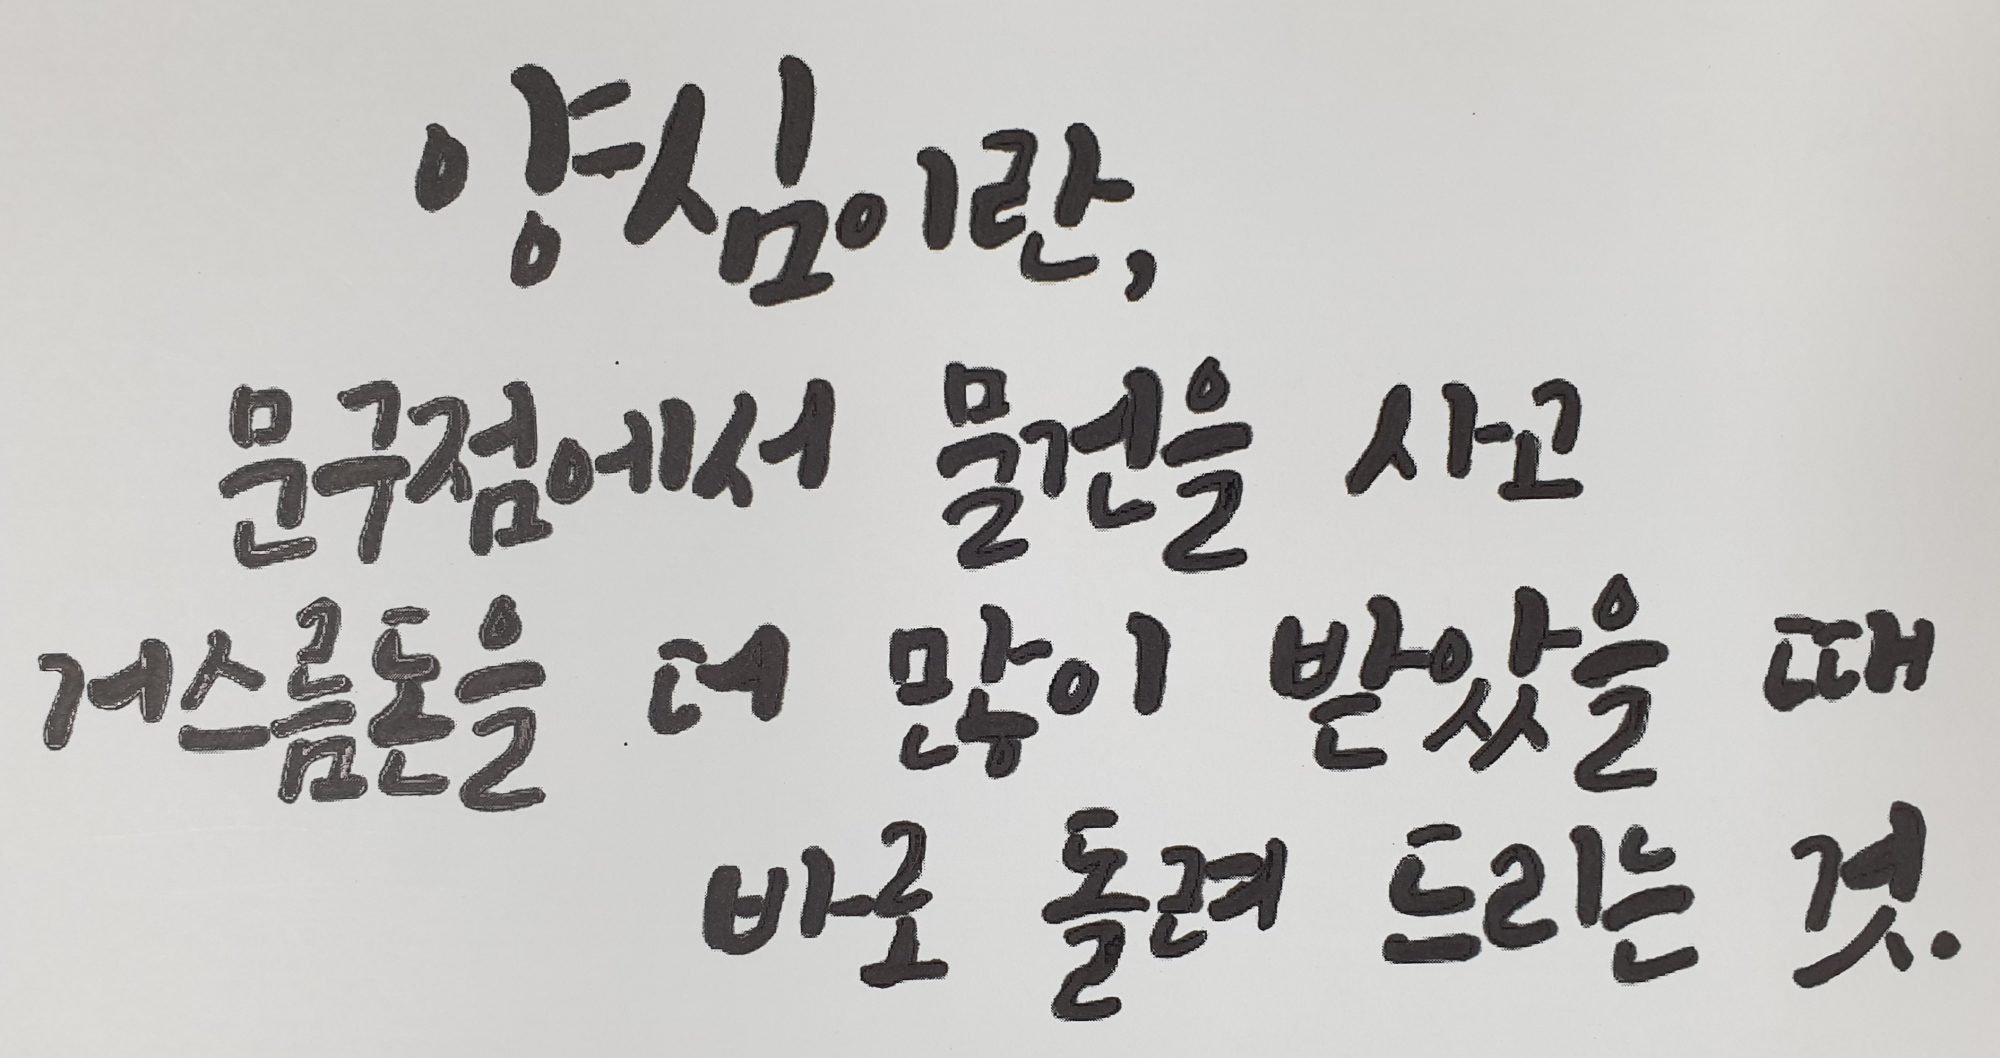 양심이란,
문구점에서 물건을 사고
거스름돈을 더 많이 받았을 때
바로 돌려 드리는 것.